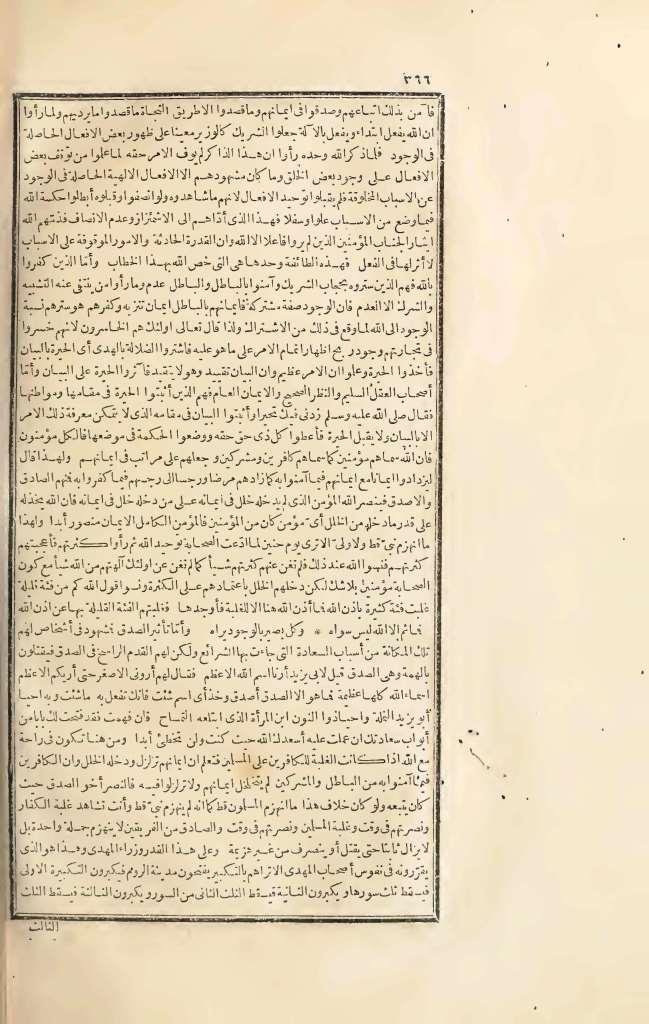 ٣٦٦
فآمن بذلك اتباعهم وصدقوا في ايمانهم وما قصدوا الا طريق النجاة ما قصدوا ما يرديهم ولما رأوا
ان الله يفعل ابتداء ويفعل بالآلة جعلوا الشريك كالوزير معينا على ظهور بعض الافعال الحاصلة
في الوجود فلما ذكر الله وحده رأوا ان هذا الذاكر لم يوف الامر حقه لما علموا من توقف بعض
الافعال على وجود بعض الخلق وما كان مشهودهم الا الافعال الالهية الحاصلة في الوجود
عن الاسباب المخلوقة فلم يقبلوا توحيد الافعال لانهم ما شاهدوه ولو انصفوا وقبلوه أبطلوا حكمة الله
فيما وضع من الاسباب علوا وسفلا فهذا الذي أداهم الى الاشمئزاز وعدم الانصاف فذمهم الله
ايثارا لجناب المؤمنين الذين لم يروا فاعلا الا الله وان القدرة الحادثة والامور الموقوفة على الاسباب
لا أثر لها في الفعل فهذه الطائفة وحدها هي التي خص الله بهذا الخطاب وأما الذين كفروا
بالله فهم الذين ستروه بحجاب الشريك وآمنوا بالباطل والباطل عدم وما رأوا من ينتفي عنه التشبيه
والشرك الا العدم فان الوجود صفة مشتركة فايمانهم بالباطل ايمان تنزيه وكفرهم هو سترهم نسبة
الوجود الى الله لما وقع في ذلك من الاشتراك ولذا قال تعالى اولئك هم الخاسرون لانهم خسروا
في تجارتهم وجود ربح اظهار اتمام الامر على ما هو عليه فاشتروا الضلالة بالهدى أي الحيرة بالبيان
فأخذوا الحيرة وعلموا ان الامر عظيم وان البيان تقييد وهو لا يتقيد فآثروا الحيرة على البيان وأما
أصحاب العقل السليم والنظر الصحيح والايمان العام فهم الذين أثبتوا الحيرة في مقامها ومواطنها
فقال صلى الله عليه وسلم زدني فيك تحيرا وأثبتوا البيان في مقامه الذي لا يتمكن معرفة ذلك الامر
الا بالبيان ولا يقبل الحيرة فأعطوا كل ذي حق حقه ووضعوا الحكمة في موضعها فالكل مؤمنون
فان الله سماهم مؤمنين كما سماهم كافرين ومشركين وجعلهم على مراتب في ايمانهم ولهذا قال
ليزدادوا ايمانا مع ايمانهم فيما آمنوا به كما زادهم مرضا ورجسا الى رجسهم فيما كفروا به فمنهم الصادق
والاصدق فينصر الله المؤمن الذي لم يدخله خلل في ايمانه على من دخله خلل في ايمانه فان الله يخذله
على قدر ما دخله من الخلل أي مؤمن كان من المؤمنين فالمؤمن الكامل الايمان منصور أبدا ولهذا
ما انهزم نبي قط ولا ولي ألا ترى يوم حنين لما ادّعت الصحابة توحيد الله ثم رأوا كثرتهم فأعجبتهم
كثرتهم فنسوا الله عند ذلك فلم تغن عنهم كثرتهم شيأ كما لم تغن عن اولئك آلهتهم من الله شيأ مع كون
الصحابة مؤمنين بلا شك لكن دخلهم الخلل باعتمادهم على الكثرة ونسوا قول الله كم من فئة قليلة
غلبت فئة كثيرة باذن الله فما أذن الله هنا الا للغلبة فأوجدها فغلبتهم الفئة القليلة بها عن اذن الله
فما ثم الا الله ليس سواه * وكل بصير بالوجود يراه وأما تأثير الصدق فمشهود في أشخاص ما لهم
تلك المكانة من أسباب السعادة التي جاءت بها الشرائع ولكن لهم القدم الراسخ في الصدق فيقتلون
بالهمة وهي الصدق قيل لابي يزيد أرنا اسم الله الاعظم فقال لهم أروني الاصغر حتى أريكم الاعظم
اسماء الله كلها عظيمة فما هو الا الصدق أصدق وخذ أي اسم شئت فانك تفعل به ما شئت وبه احيا
أبو يزيد النملة واحيا ذو النون ابن المرأة الذي ابتلعه التمساح فان فهمت فقد فتحت لك بابا من
أبواب سعادتك ان عملت عليه أسعدك الله حيث كنت ولن تخطئ أبدا ومن هنا تكون في راحة
مع الله اذا كانت الغلبة للكافرين على المسلمين فتعلم ان ايمانهم تزلزل ودخله الخلل وان الكافرين
فيما آمنوا به من الباطل والمشركين لم يتخلخل ايمانهم ولا تزلزلوا فيه فالنصر أخو الصدق حيث
كان يتبعه ولو كان خلاف هذا ما انهزم المسلمون قط كما انه لم ينهزم نبي قط وأنت تشاهد غلبة الكفار
ونصرتهم في وقت وغلبة المسلمين ونصرتهم في وقت والصادق من الفريقين لا ينهزم جملة واحدة بل
لا يزال ثابتا حتى يقتل أو ينصرف من غير هزيمة وعلى هذا القدم وزراء المهدي وهذا هو الذي
يقررونه في نفوس أصحاب المهدي ألا تراهم بالتكبير يفتحون مدينة الروم فيكبرون التكبيرة الاولى
فيسقط ثلث سورها ويكبرون الثانية فيسقط الثلث الثاني من السور ويكبرون الثالثة فيسقط الثلث
الثالث